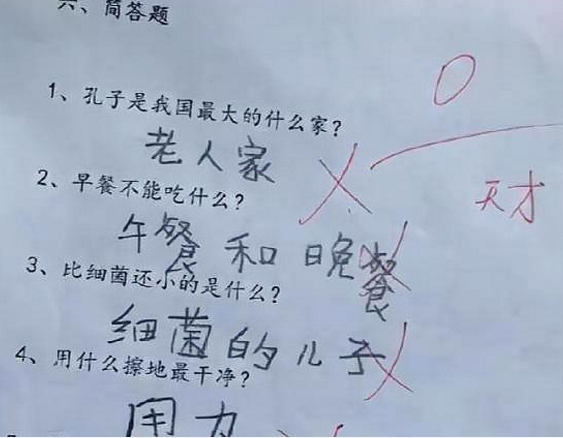 六、简答题
0
1、孔子是我国最大的什么家?
老人家
天才
2、早餐不能吃什么?
午餐和晚餐
3、比细菌还小的是什么?
细菌的儿子
4、用什么擦地最干净?
用力